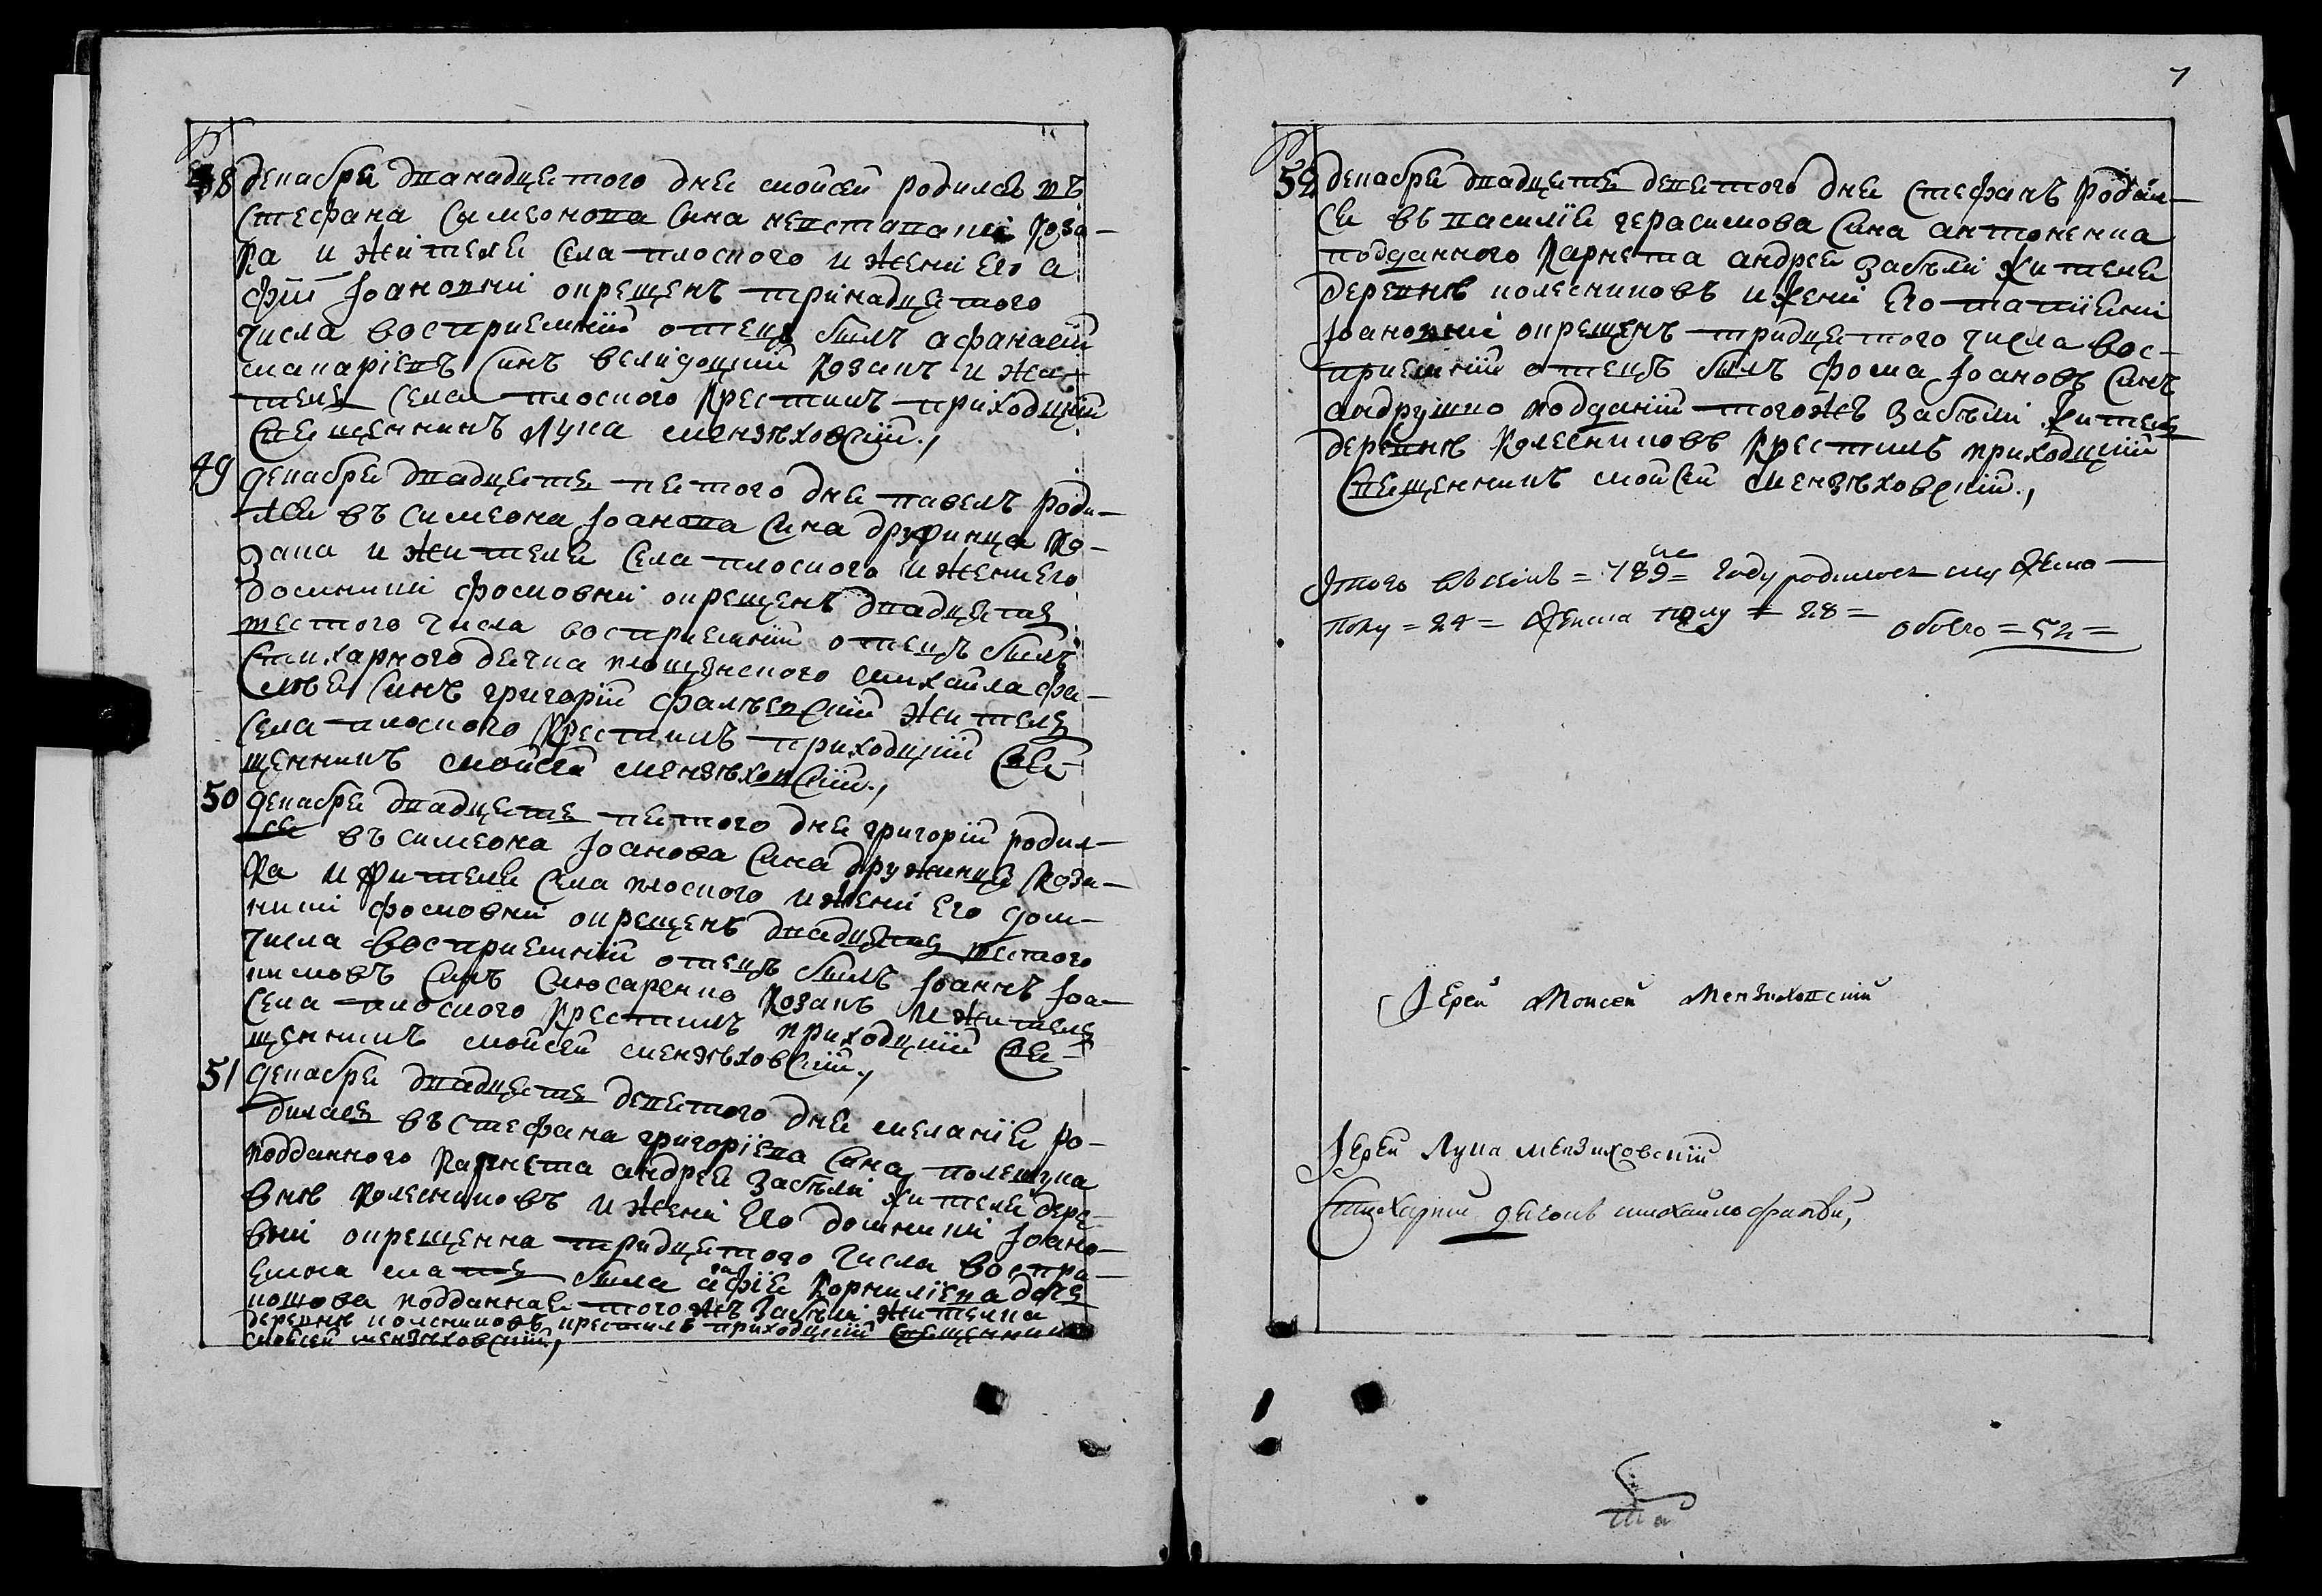 48 декабря дванадцятого дня моисей родился въ
стефана симеонова сина козо-
ка и жителя села плоского и жени его а
фїи Іоановни окрещенъ тринадцятого
числа восприемнїй отецъ былъ афанасїй
макарїевъ синъ козакъ и жи-
тель села плоского крестилъ приходцкїй
священникъ лука мензѣховскїй.,
49 декабря двадцять пятого дня павелъ роди-
лся въ симеона Іоанова сина дружинца ко-
зака и жителя села плоского и жени его
домникїи фомовни окрещенъ двадцять
шестого числа восприемнїй отецъ былъ
стихарного дячка михайла фа-
синъ григорїй житель
села плоского крестилъ приходцкїй свя-
щенникъ моисей мензѣховскїй.,
50 декабря двадцять пятого дня григорїй родил-
ся въ симеона Іоанова сина дружинца коза-
ка и жителя села плоского и жени его дом-
никїи фомовни окрещенъ двадцять шестого
числа восприемнїй отецъ былъ Іоаннъ Іоа-
кимовъ синъ слюсаренко козакъ и житель
села плоского крестилъ приходцкїй свя-
щенникъ моисей мензѣховскїй.,
51 декабря двадцять девятого дня меланїя ро-
дилась въ стефана григорїева сина
подданного карнета андрея забѣли жителя дере-
внѣ колесниковъ и жени его домникїи Іоано-
вни окрещенна тридцятого числа воспри-
емна мать была агафїя корнилїева дочь
подданная того жъ забѣли жителка
деревнѣ колесниковъ крестилъ приходцкїй священникъ
моисей мензѣховскїй.,
7
52 декабря двадцять девятого дня стефанъ родил-
ся въ василїя герасимова сина антоненка
подданного карнета андрея забѣли жителя
деревнѣ колесниковъ и жени его татїяни
Іоановни окрещенъ тридцятого числа вос-
приемнїй отецъ былъ фома Іоановъ синъ
андрушко подданїй того жъ забѣли житель
деревнѣ колесниковъ крестилъ приходцкїй
священникъ моисей мензѣховскїй.,
Итого въ семъ = 789 = году родилось мужеско
полу = 24 = женска полу = 28 = обоего = 52 =
Іерей Моисей Мензиховскїй
Іерей Лука мензиховскїй
Стихарнїй дячокъ михайло